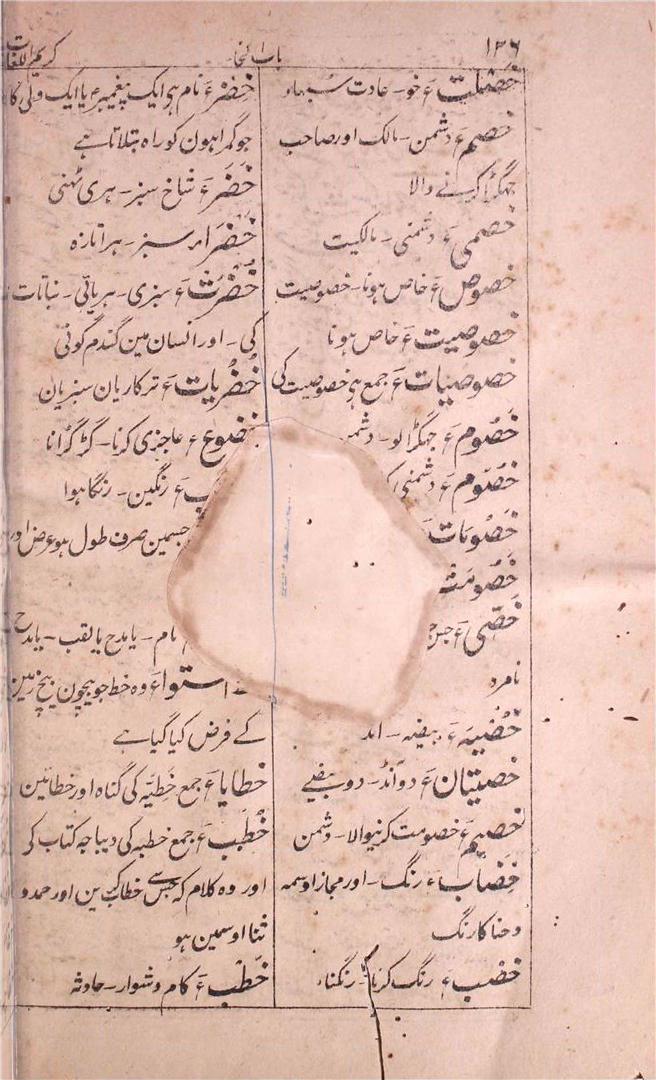 ۱۲۶
باب الخا
کریم اللغات
خصلت ء خو۔ عادت سبھاو
خصم ء دشمن۔ مالک اور صاحب
جھگڑا کرنے والا
خصمی ء دشمنی۔ مالکیت
خصوص ء خاص ہونا۔ خصوصیت
خصوصیت ء خاص ہونا
خصوصیات ء جمع ہی خصوصیت کی
خَصُوم ء جھگڑالو۔
خُصُوم ء دشمنی
خُصُومات
خُصُومت
خَصّی ء
نامرد
خُصْیَہ ء بیضہ۔ انڈ
خصیتان ء دو انڈ۔ دو بیضے
خصیم ء خصومت کرنیوالا۔ دشمن
خضاب ء رنگ۔ اور مجازا وسمہ
و حنا کا رنگ
خضب ء رنگ کرنا۔ رنگنا
خضر ء نام ہی ایک پیغمبر یا ایک ولی کا
جو گمراہون کو راہ بتلاتا ہے
خَضَر ء شاخ سبز۔ ہری ٹہنی
خَضْرا سبز۔ ہرا تازہ
خُضْرت ء سبزی۔ ہریائی۔ نباتات
کی۔ اور انسان مین گندم گونی
خُضْریات ء ترکاریان سبزیان
خضوع ء عاجزی کرنا۔ گڑگڑانا
ء رنگین۔ رنگا ہوا
جسمین صرف طول ہو عرض اور
نام۔ یا مدح یا لقب۔ یا مدح
استوا ء وہ خط جو بیچون بیچ زمین
کے فرض کیا گیا ہے
خطایا ء جمع خطیّہ کی گناہ اور خطائین
خُطَب ء جمع خطبہ کی دیباچہ کتاب کر
اور وہ کلام کہ جس سے خطاب کرین اور حمد و
ثنا اوسمین ہو
خَطْب ء کام دشوار۔ حادثہ